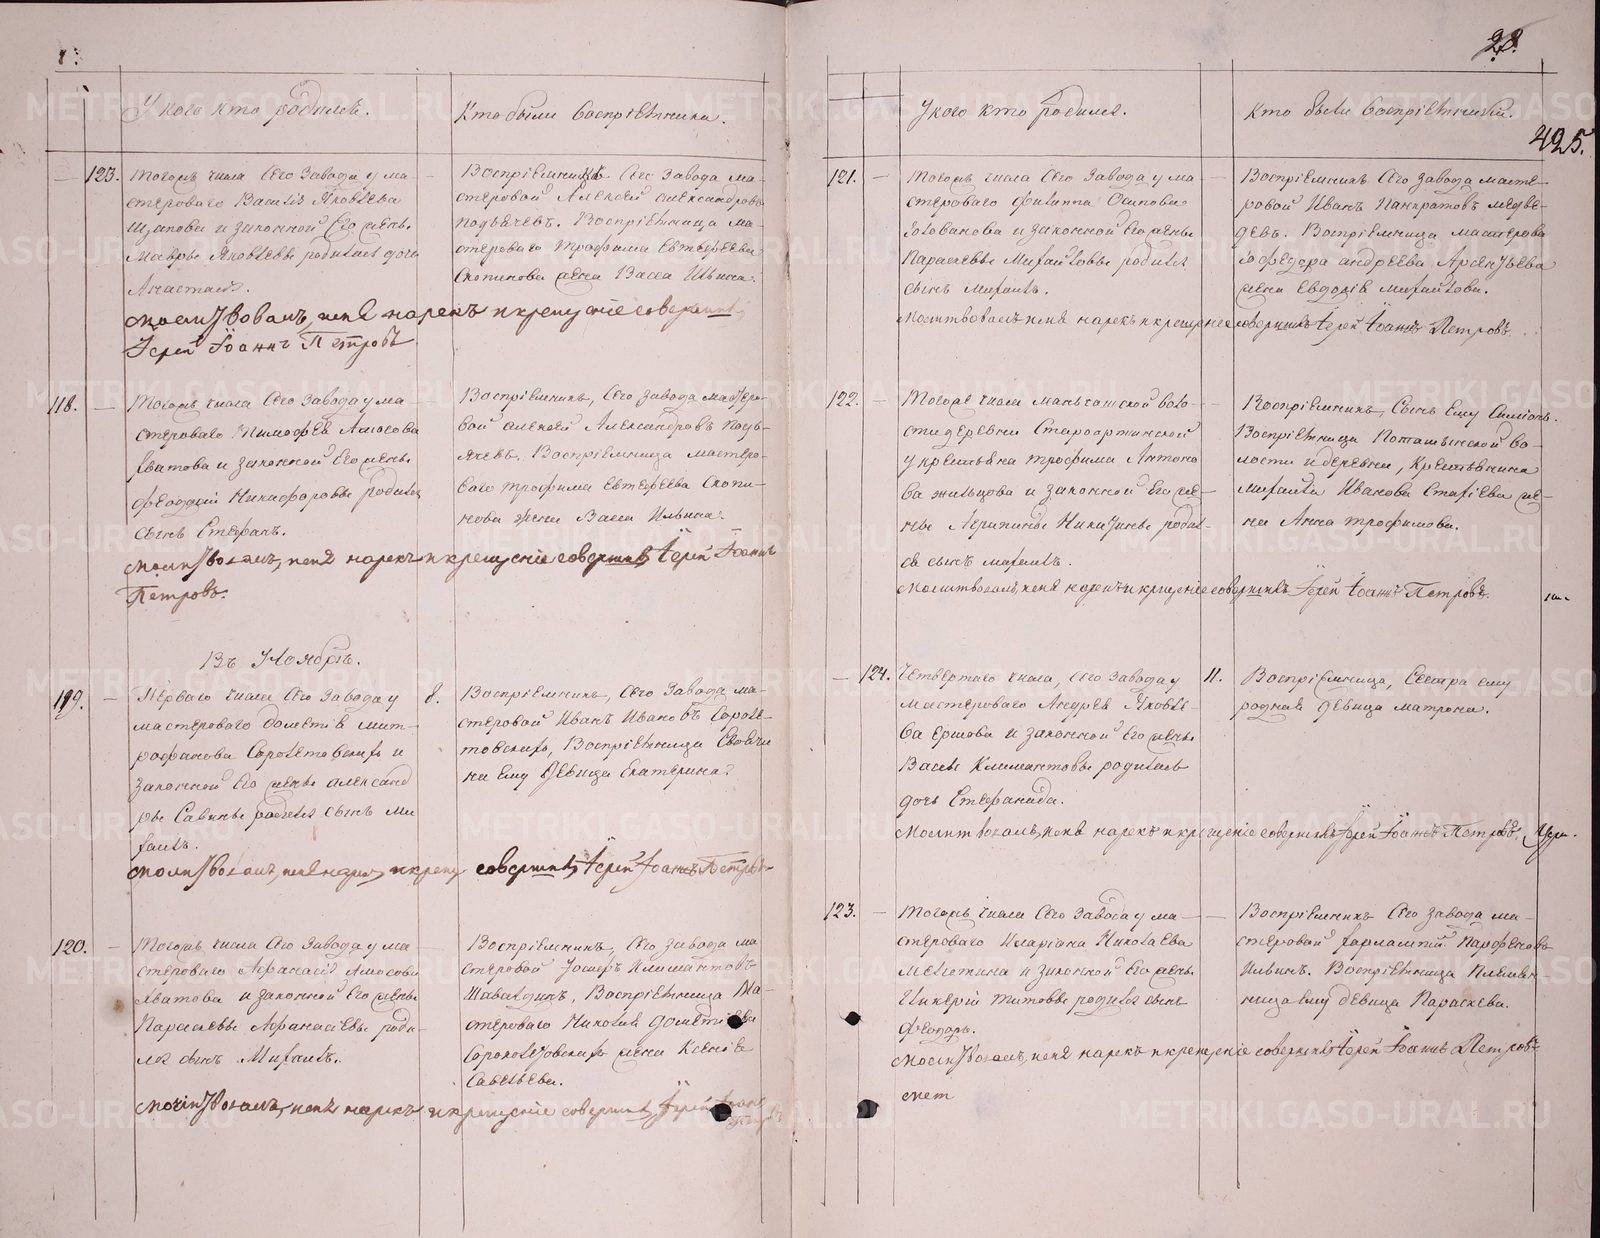 28.
425.
У кого кто родился.
Кто были Восприемники.
123.
Тогожъ числа Сего Завода у ма-
стероваго Василія Яковлева
Щапова и законной его жены
Мавры Яковлевы родилась дочь
Анастасія.
Восприемникъ Сего Завода ма-
стеровой Алексей Александровъ
Восприемница ма-
стероваго Трофима Евтефеева
Скопинова жена Васса Ильина.
Молитвовалъ, имя нарекъ и крещеніе совершилъ
Іерей Іоаннъ Петровъ
118.
Тогожъ числа Сего Завода у ма-
стероваго Тимофея Амосова
Хватова и законной его жены
Феодосіи Никифоровы родился
сынъ Стефанъ.
Восприемникъ, Сего Завода мастеро-
вой Алексей Александровъ
Восприемница мастеро-
ваго Трофима Евтефеева Скопи-
нова жена Васса Ильина.
Молитвовалъ, имя нарекъ и крещеніе совершилъ Іерей Іоаннъ
Петровъ.
Въ Ноябрѣ.
119.
Перваго числа Сего Завода у
мастероваго Дометія Мит-
рофанова и
законной его жены Александ
ры Савины родился сынъ Ми
хаилъ.
8.
Восприемникъ, Сего Завода ма-
стеровой Иванъ Ивановъ
Восприемница
ему Девица Екатерина.
Молитвовалъ, имя нарекъ, и крещ совершилъ Іерей Іоаннъ Петровъ
120.
Тогожъ числа Сего Завода у ма-
стероваго Афанасія Амосова
Хватова и законной его жены
Парасковьи Афанасіевы роди-
лся сынъ Михаилъ.
Восприемникъ, Сего Завода ма
стеровой Климантовъ
Восприемница Ма-
стероваго Николая Дометіева
жена Ксенія
Савельева.
Молитвовалъ, имя нарекъ и крещеніе совершилъ Іерей Іоаннъ
У кого кто родился.
Кто были Восприемники.
121.
Тогожъ числа Сего Завода у ма-
стероваго Филиппа Осипова
Голованова и законной его жены
Параскевы Михайловы родился
сынъ Михаилъ.
Восприемникъ Сего Завода масте-
ровой Иванъ Панкратовъ Медве-
девъ. Восприемница мастерова
го Федора Андреева Арсентьева
жена Евдокія Михайлова.
Молитвовалъ имя нарекъ и крещеніе совершилъ Іерей Іоаннъ Петровъ.
122.
Тогоже числа Манчашской воло-
сти деревни Староартинской
у крестьяна Трофима Антоно
ва Жильцова и законной его же-
ны Агрипины Никитины родил-
ся сынъ Михаилъ.
Восприемникъ, Сынъ ему Симіонъ.
Восприемница Поташинской во-
лости и деревни, Крестьянина
Михаила Иванова же-
на Анна Трофимова.
Молитвовалъ, имя нарекъ и крещеніе совершилъ Іерей Іоаннъ Петровъ.
124.
Четвертаго числа, Сего Завода у
мастероваго Андрея Яковле-
ва Ершова и законной его жены
Вассы Климантовы родилась
дочь Стефанида.
11.
Восприемница, Сестра ему
родная девица Матрона.
Молитвовалъ, имя нарекъ и крещеніе совершилъ Іерей Іоаннъ Петровъ
123.
Тогожъ числа Сего Завода у ма-
стероваго Иларіона Николаева
и законной его жены
Гликеріи Титовы родился сынъ
Феодоръ.
Восприемникъ Сего Завода ма-
стеровой Харлампій Парфеновъ
Ильинъ. Восприемница Племян-
ница ему девица Параскева.
Молитвовалъ, имя нарекъ и крещеніе совершилъ Іерей Іоаннъ Петровъ
METRIKI.GASO-URAL.RU